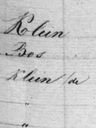 Klein
Bos
Klein de
"
"